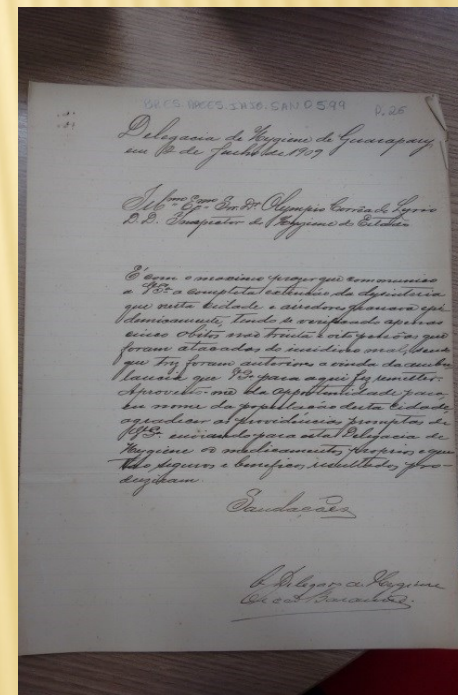 BR.ES.APEES.IH20.SAN.0599 P.25
Delegacia de Hygiene de Guarapary
em de Julho de 1909
Illmo Exmo Snr. Dr. Olympio Corrêa de Lyrio
D. D. Inspector de Hygiene do Estado
É com o maximo prazer que communico
a VSa a completa extincção da dysinteria
que nesta cidade e arredores grassava epi-
demicamente, tendo se verificado apenas
cinco obitos nas trinta e oito pessôas que
foram atacadas do insidioso mal, sendo
que tres foram anteriores a vinda da ambu-
lancia que VSa para aqui fez remetter.
Aproveito-me da opportunidade para,
em nome da população desta cidade,
agradecer as providencias promptas de
VSa enviando para esta Delegacia de
Hygiene os medicamentos proprios e que
tão seguros e beneficos resultados pro-
duziram.
Saudações
O Delegado de Hygiene